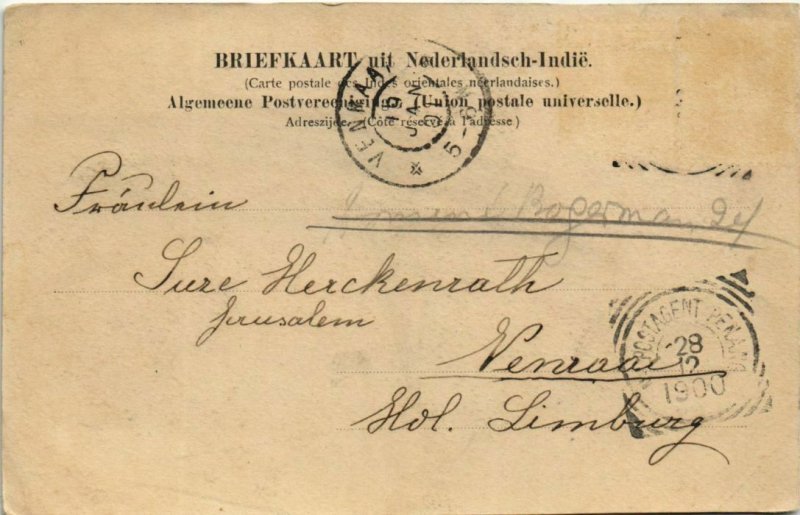 BRIEFKAART uit Nederlandsch-Indië.
(Carte postale des Indes orientales néerlandaises.)
Algemeene Postvereeniging (Union postale universelle.)
Adreszijde. (Côté réservé à l'adresse.)
VENRAAI
19 JAN 01
5-6N
Fräulein
Bogerman
Suze Herckenrath
Jerusalem
Venraai
Hol. Limburg
POSTAGENT PENANG
28
12
1900